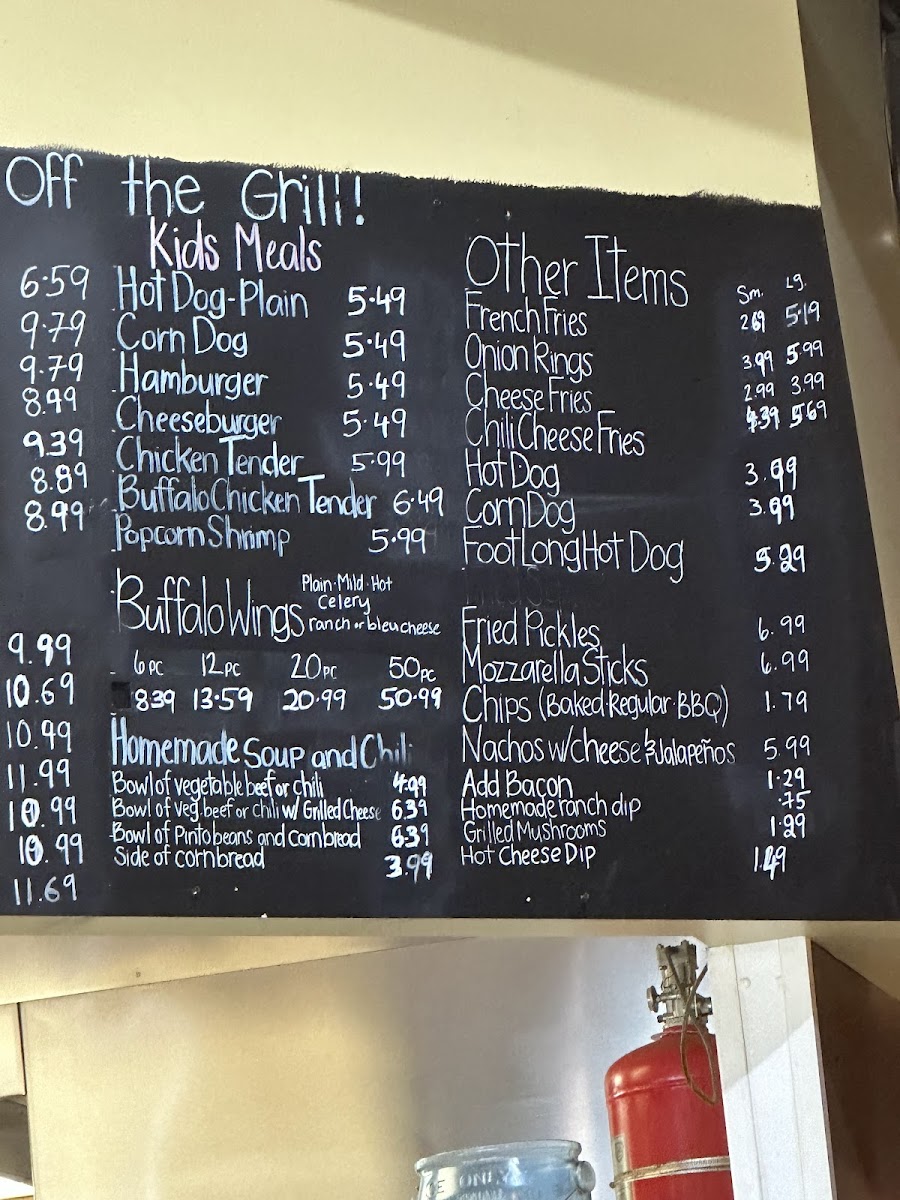 Off the Grill!
6.59
9.79
9.79
8.99
9.39
8.89
8.99
9.99
10.69
10.99
11.99
10.99
10.99
11.69
Kids Meals
Hot Dog-Plain 5.49
Corn Dog 5.49
Hamburger 5.49
Cheeseburger 5.49
Chicken Tender 5.99
Buffalo Chicken Tender 6.49
Popcorn Shrimp 5.99
Buffalo Wings
Plain·Mild·Hot
Celery
ranch or bleu cheese
6pc 12pc 20pc 50pc
8.39 13.59 20.99 50.99
Homemade Soup and Chili
Bowl of vegetable beef or chili 4.99
Bowl of veg. beef or Chili w/ Grilled Cheese 6.39
Bowl of Pinto beans and cornbread 6.39
Side of cornbread 3.99
Other Items
Sm. Lg.
French Fries 2.69 5.19
Onion Rings 3.99 5.99
Cheese Fries 2.99 3.99
Chili Cheese Fries 4.39 5.69
Hot Dog 3.99
Corn Dog 3.99
Foot Long Hot Dog 5.29
Fried Pickles 6.99
Mozzarella Sticks 6.99
Chips (Baked·Regular·BBQ) 1.79
Nachos w/cheese & Jalapeños 5.99
Add Bacon 1.29
Homemade ranch dip .75
Grilled Mushrooms 1.29
Hot Cheese Dip 1.49
ICE ONLY